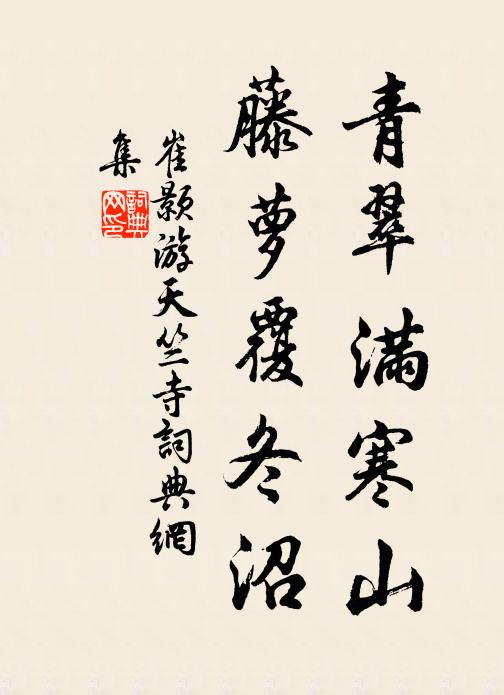 青翠滿寒山
藤蘿覆冬沼
崔顥游天竺寺詞典網
集
詞典
网印